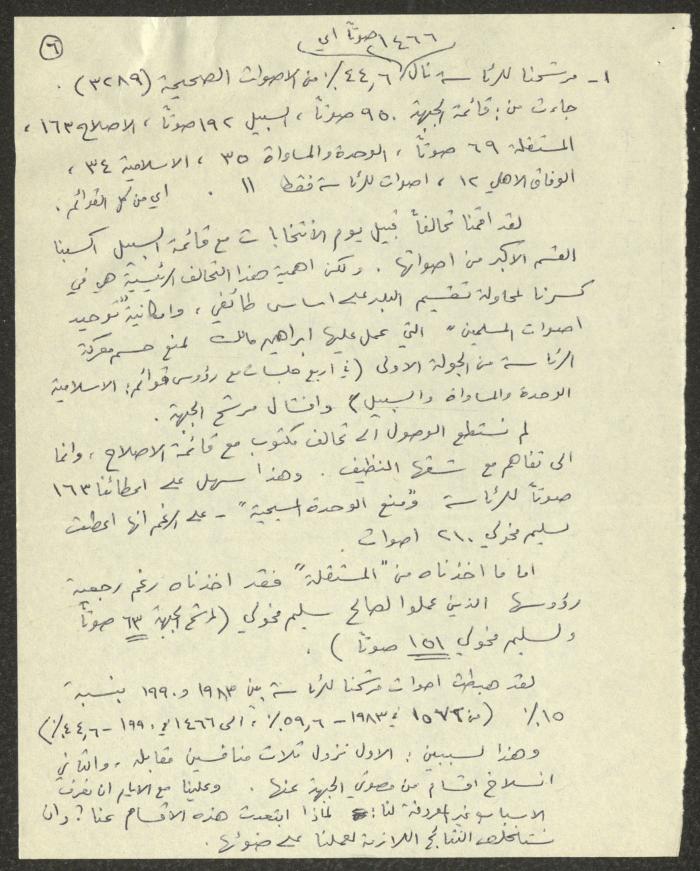 ٦
١٤٦٦ صوتاً اي
١- مرشحنا للرئاسة نال ٤٤,٦٪ من الاصوات الصحيحة (٣٢٨٩).
جاءت من: قائمة الجبهة ٩٥٠ صوتاً، السبيل ١٩٢ صوتاً، الاصلاح ١٦٣،
المستقلة ٦٩ صوتاً، الوحدة والمساواة ٣٥، الاسلامية ٣٤،
الوفاق الاهلي ١٢، اصوات للرئاسة فقط ١١. اي من كل القوائم.
لقد اقمنا تحالفاً قبيل يوم الانتخابات مع قائمة السبيل اكسبنا
القسم الاكبر من اصواتها. ولكن اهمية هذا التحالف الرئيسية هي في
كسرنا لمحاولة تقسيم البلد على اساس طائفي، وامكانية "توحيد
اصوات المسلمين" التي عمل عليها ابراهيم مالك لمنع حسم معركة
الرئاسة من الجولة الاولى (في اربع جلسات مع رؤوس قوائم: الاسلامية
الوحدة والمساواة والسبيل) وافشال مرشح الجبهة.
لم نستطع الوصول الى تحالف مكتوب مع قائمة الاصلاح، وانما
الى تفاهم مع شقها النظيف. وهذا سهل على اعطائنا ١٦٣
صوتاً للرئاسة "ومنع الوحدة المسيحية" - على الرغم انها اعطت
سليم مخولي ٢١٠ اصوات.
اما ما اخذناه من "المستقلة" فقد اخذناه رغم رجعية
رؤوسها الذين عملوا لصالح سليم مخولي (لمرشح الجبهة ٦٣ صوتاً
ولسليم مخولي ١٥١ صوتاً).
لقد هبطت اصوات مرشحنا للرئاسة بين ١٩٨٣ و١٩٩٠ بنسبة
١٥٪ (من ١٥٧٢ في ١٩٨٣ - ٥٩,٦٪، الى ١٤٦٦ في ١٩٩٠ - ٤٤,٦٪)
وهذا لسببين: الاول نزول ثلاث منافسين مقابله، والثاني
انسلاخ اقسام من مصوتي الجبهة عنها. وعلينا مع الايام ان نعرف
الاسباب غير المعروفة لنا: لماذا ابتعدت هذه الاقسام عنا؟ وان
نستخلص النتائج اللازمة لعملنا على ضوئها.